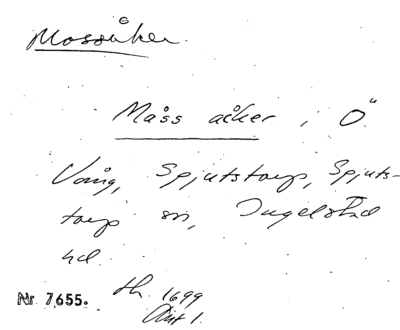 Mossåker
Måss åker, i Ö
Vång, Spjutstorp, Spjuts-
torp sn, Ingelstad
hd.
Nr 7655. th. 1699
Akt 1.